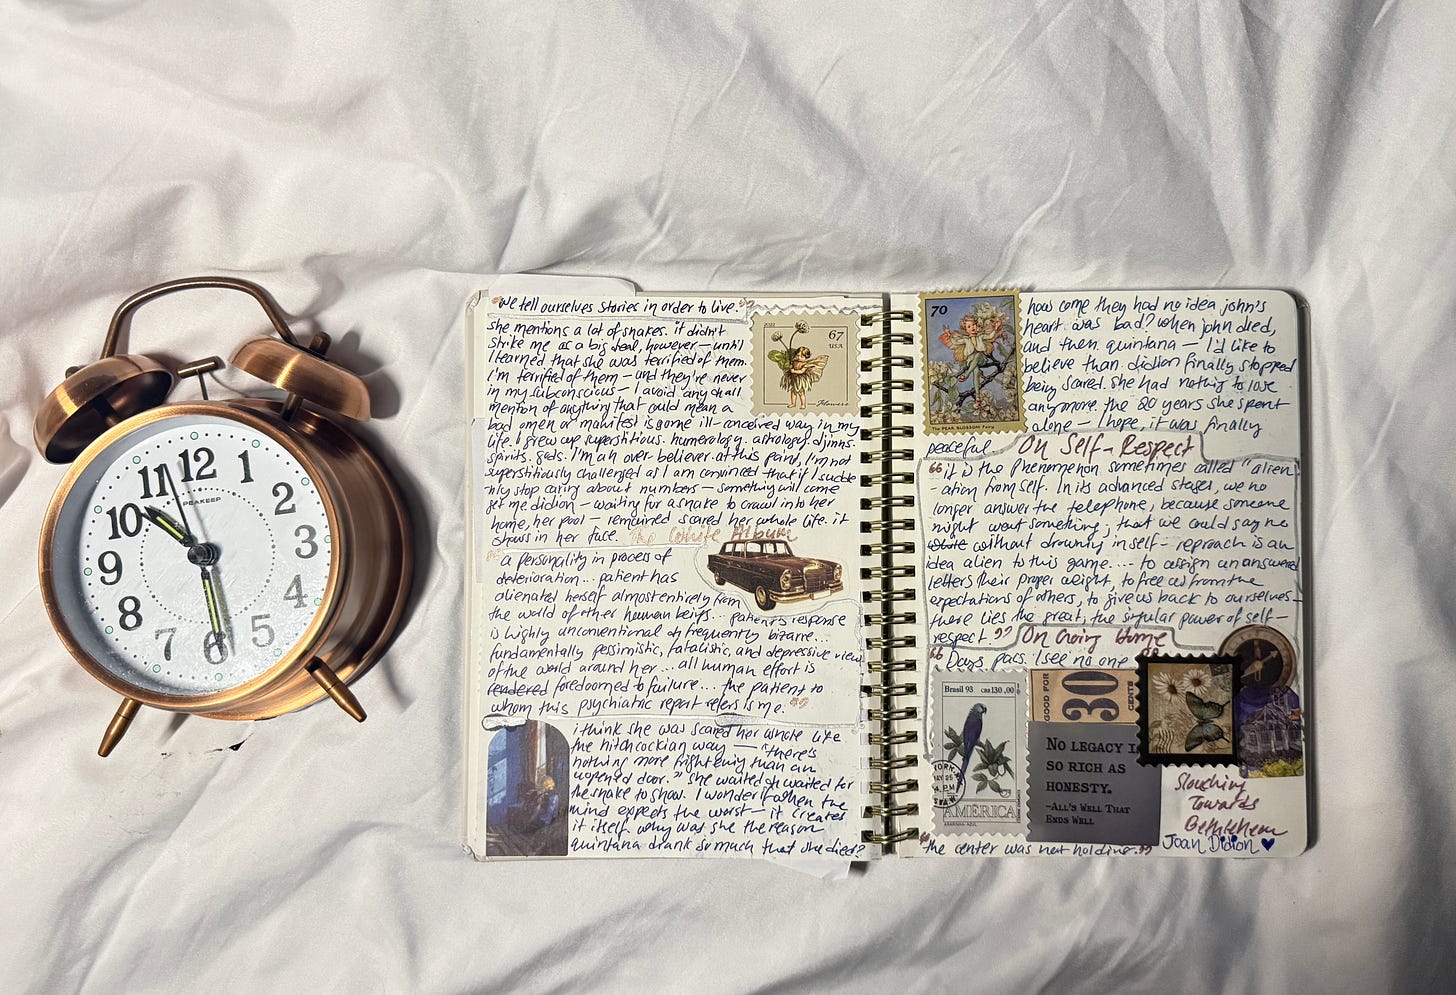 11 12 1
10 2
PEAKEEP
9 3
8 4
7 6 5
"We tell ourselves stories in order to live."
she mentions a lot of snakes. it didn't
strike me as a big deal, however – until
I learned that she was terrified of them.
I'm terrified of them – and they're never
in my subconscious – I avoid any & all
mention of anything that could mean a
bad omen or manifest is some ill-conceived way in my
life. I grew up superstitious. numerology. astrology. djinns.
spirits. gods. I'm an over-believer at this point, I'm not
superstitiously challenged as I am convinced that if I sudde
-nly stop caring about numbers – something will come
get me didion – waiting for a snake to crawl into her
home, her pool – remained scared her whole life. it
shows in her fuse. The White Album
"a personality in process of
deterioration... patient has
alienated herself almost entirely from
the world of other human beings... patient's response
is highly unconventional & frequently bizarre...
fundamentally pessimistic, fatalistic, and depressive view
of the world around her... all human effort is
rendered foredoomed to failure... the patient to
whom this psychiatric report refers is me."
i think she was scared her whole life
the hitchcockian way – "there's
nothing more frightening than an
unopened door." she waited & waited for
the snake to show. I wonder if when the
mind expects the worst – it creates
it itself. why was she the reason
quintana drank so much that she died?
2022
67
USA
Flowers
70
The PEAR BLOSSOM Fairy
how come they had no idea john's
heart was bad? when john died,
and then quintana – I'd like to
believe than didion finally stopped
being scared. She had nothing to lose
anymore. the 20 years she spent
alone – I hope, it was finally
peaceful. On Self-Respect
"it is the phenomenon sometimes called "alien
-ation from self. In its advanced stages, we no
longer answer the telephone, because someone
might want something; that we could say no
without drowning in self-reproach is an
idea alien to this game.... to assign unanswered
letters their proper weight, to free us from the
expectations of others, to give us back to ourselves–
there lies the great, the singular power of self–
respect." On Going Home
"Days pass. I see no one
Brasil 93 CR$ 130,00
AMÉRICA
ARARINHA-AZUL
GOOD FOR
30
CENTS
NO LEGACY I
SO RICH AS
HONESTY.
–ALL'S WELL THAT
ENDS WELL
Slouching
Towards
Bethlehem
"the center was not holding." Joan Didion